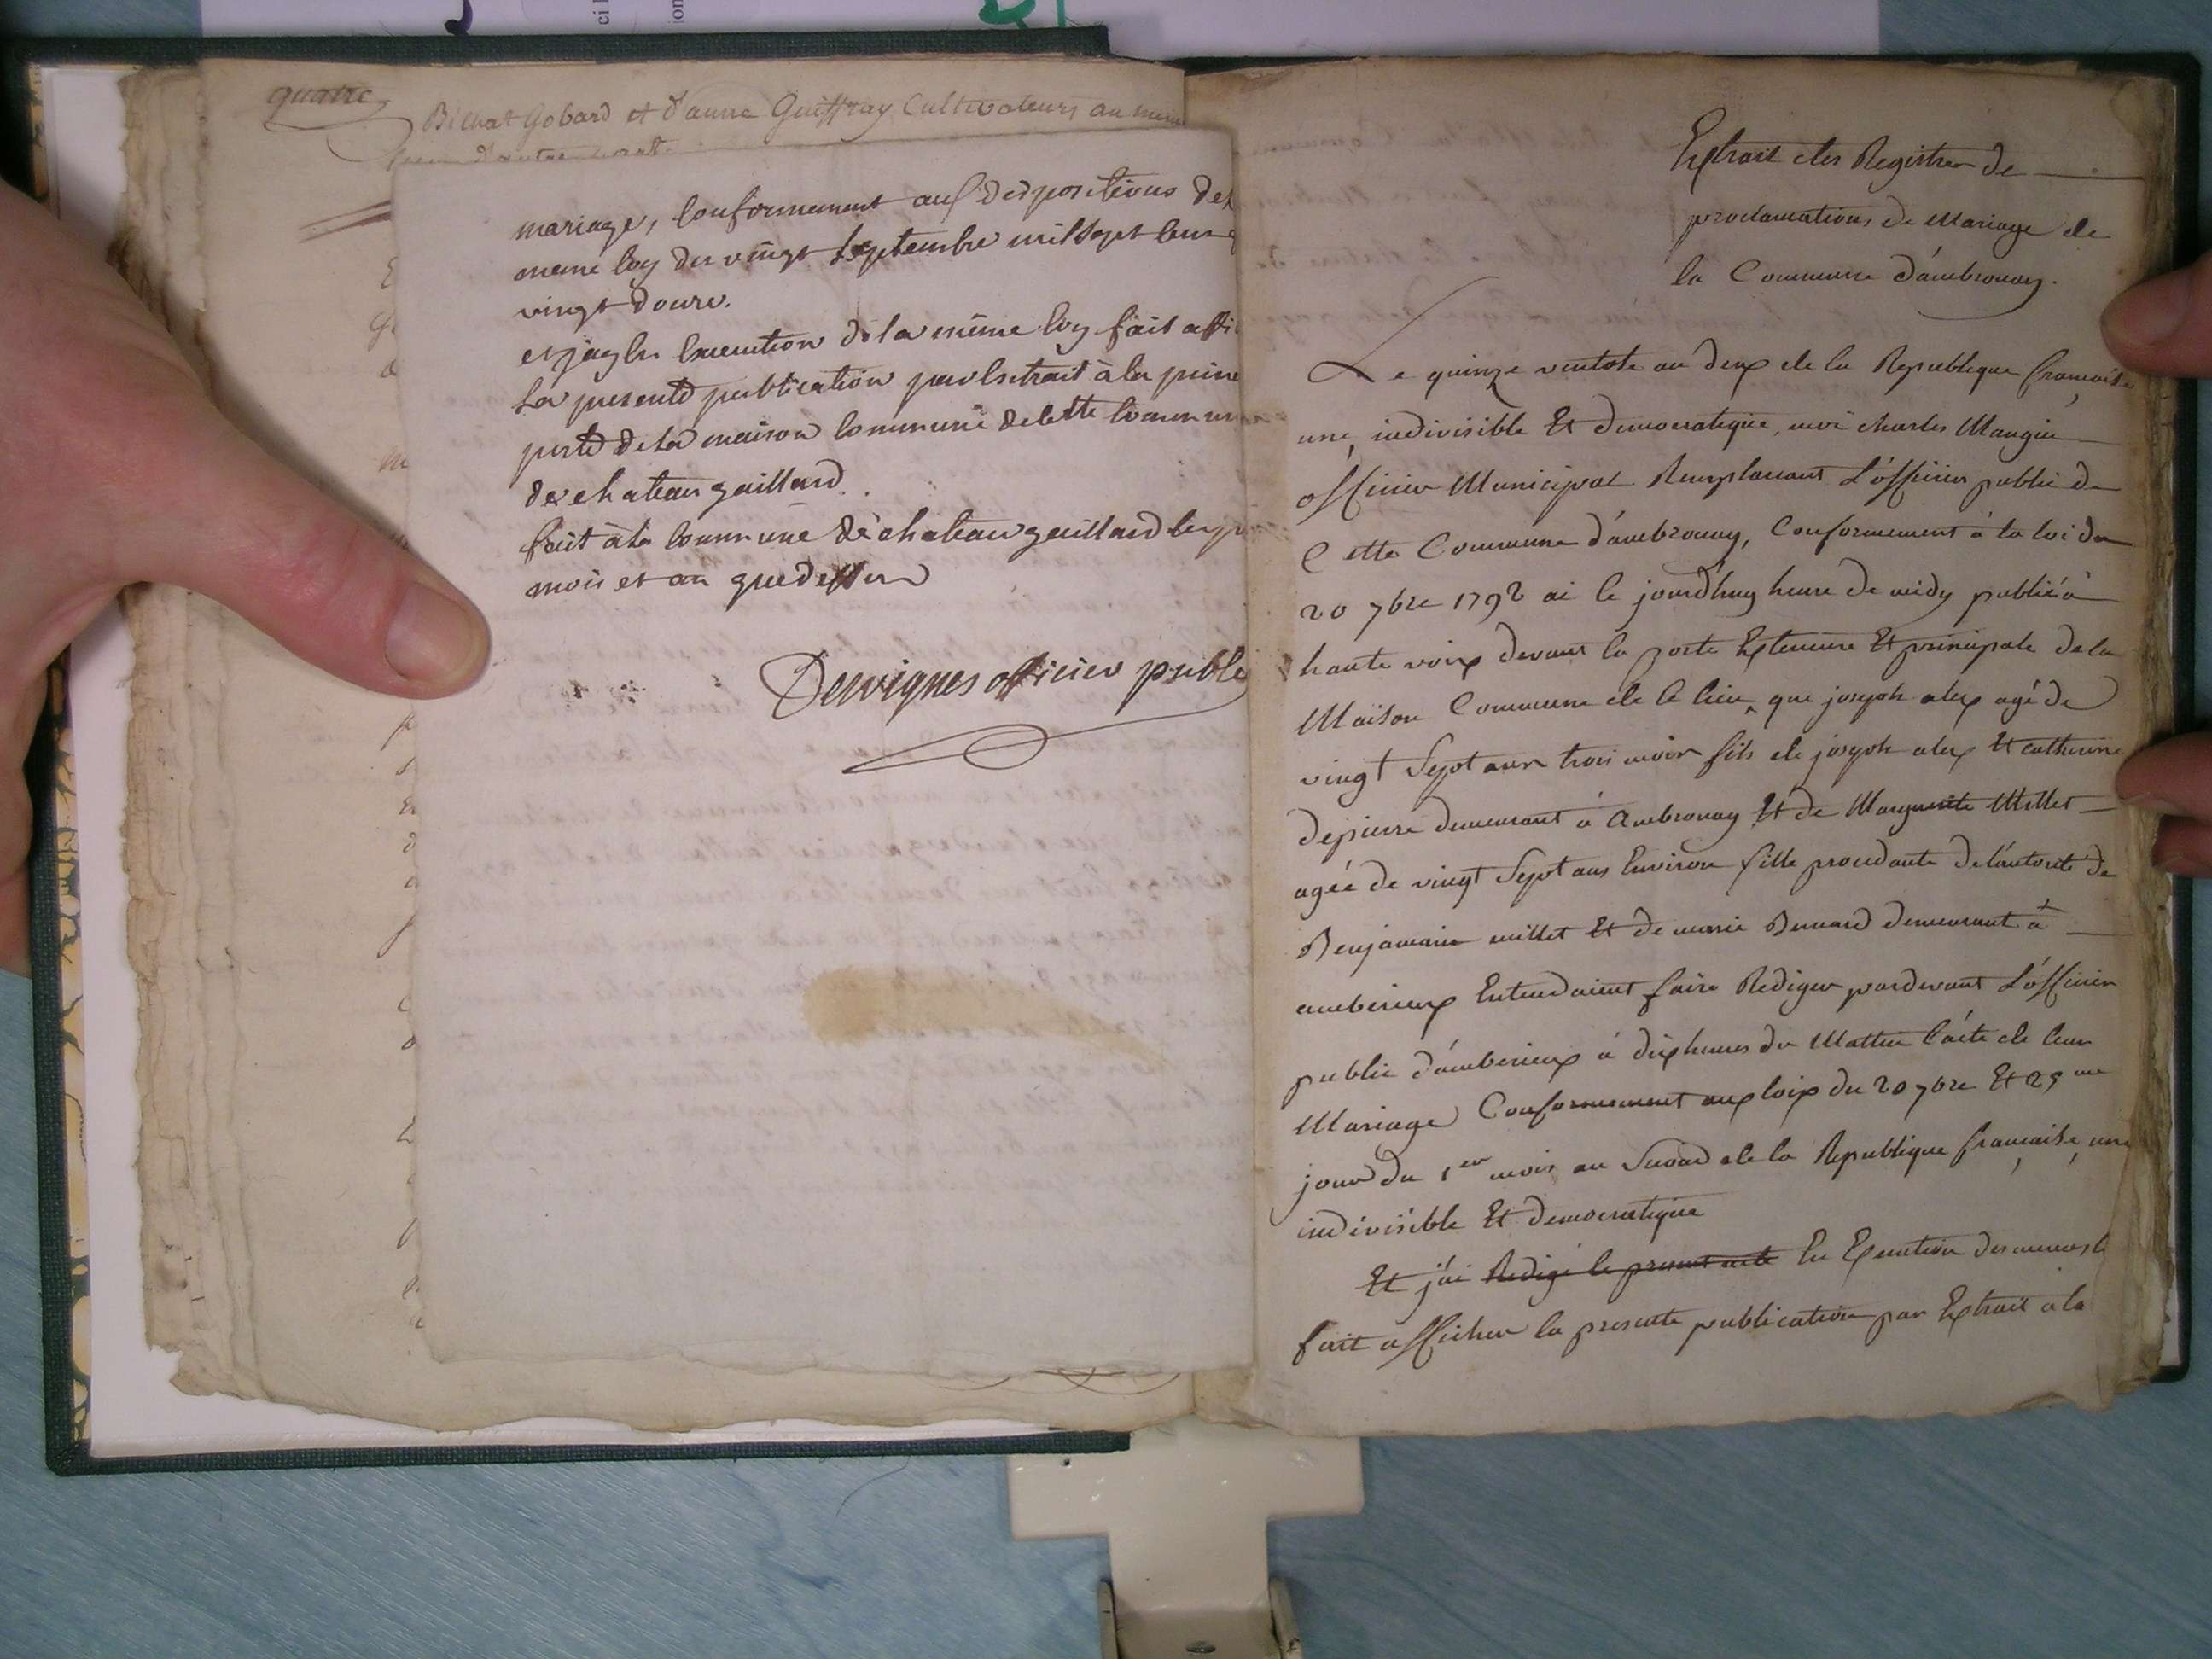 quatre
Bichat Gobard et d'anne Guiffray Cultivateurs au
d'autre part
mariage, Conformement aux dispositions de
meme loy du vingt Septembre mil Sept Cens
vingt douze.
et jay en Execution de la même loy fait affi
La presente publication par Extrait à la prin
porte de la maison Commune de Cette Commun
de chateau gaillard
fait à la Commune de chateau gaillard les
mois et an que dessus
Desvignes officier public
Extrait des Registres de
proclamations de Mariage de
la Commune d'ambronay.
Le quinze ventose an deux de la Republique francaise
une, indivisible Et democratique, moi charles Mangin
officier Municipal Remplacant L'officier public de
Cette Commune d'ambronay, Conformement à la loi du
20 7bre 1792 ai le jourd'huy heure de midy publié à
haute voix devant la porte Exterieure Et principale de la
Maison Commune de Ce lieu, que joseph alex agé de
vingt Sept ans trois mois fils de joseph alex Et catherine
depierre demeurant à Ambronay Et de Marguerite Millet
agée de vingt Sept ans Environ fille procedante de l'autorité de
Benjamain millet Et de marie Bernard demeurant à
amberieux Entendaient faire Rediger pardevant L'officier
public d'amberieux à dix heures du Mattin l'acte de leur
Mariage Conformement aux loix du 20 7bre Et 25 me
jour du 1er mois an Second de la Republique francaise, une
indivisible Et democratique
Et j'ai Redigé le present acte En Execution des memes
fait afficher la presente publication par Extrait a la